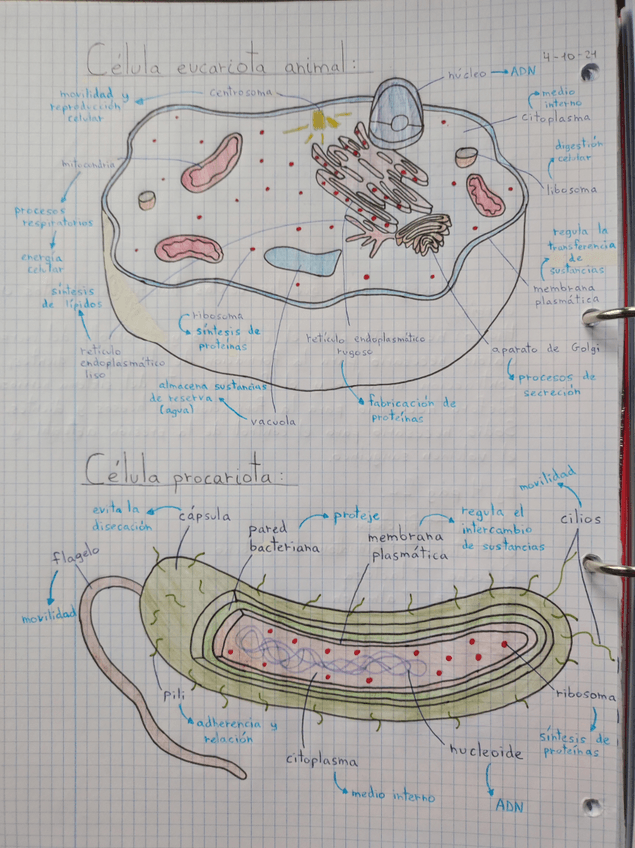 Célula eucariota animal:
4-10-21
núcleo → ADN
movilidad y
reproducción
celular
centrosoma
medio
interno
citoplasma
mitocondria
digestión
celular
libosoma
procesos
respiratorios
energía
celular
regula la
transferencia
de
sustancias
membrana
plasmática
síntesis
de lípidos
ribosoma
síntesis de
proteínas
retículo
endoplasmático
liso
retículo endoplasmático
rugoso
aparato de Golgi
procesos de
secreción
almacena sustancias
de reserva
(agua)
vacuola
fabricación de
proteínas
Célula procariota:
movilidad
cilios
evita la
disecación
cápsula
pared
bacteriana
proteje
membrana
plasmática
regula el
intercambio
de sustancias
flagelo
movilidad
pili
adherencia y
relación
ribosoma
síntesis de
proteínas
citoplasma
medio interno
nucleoide
ADN